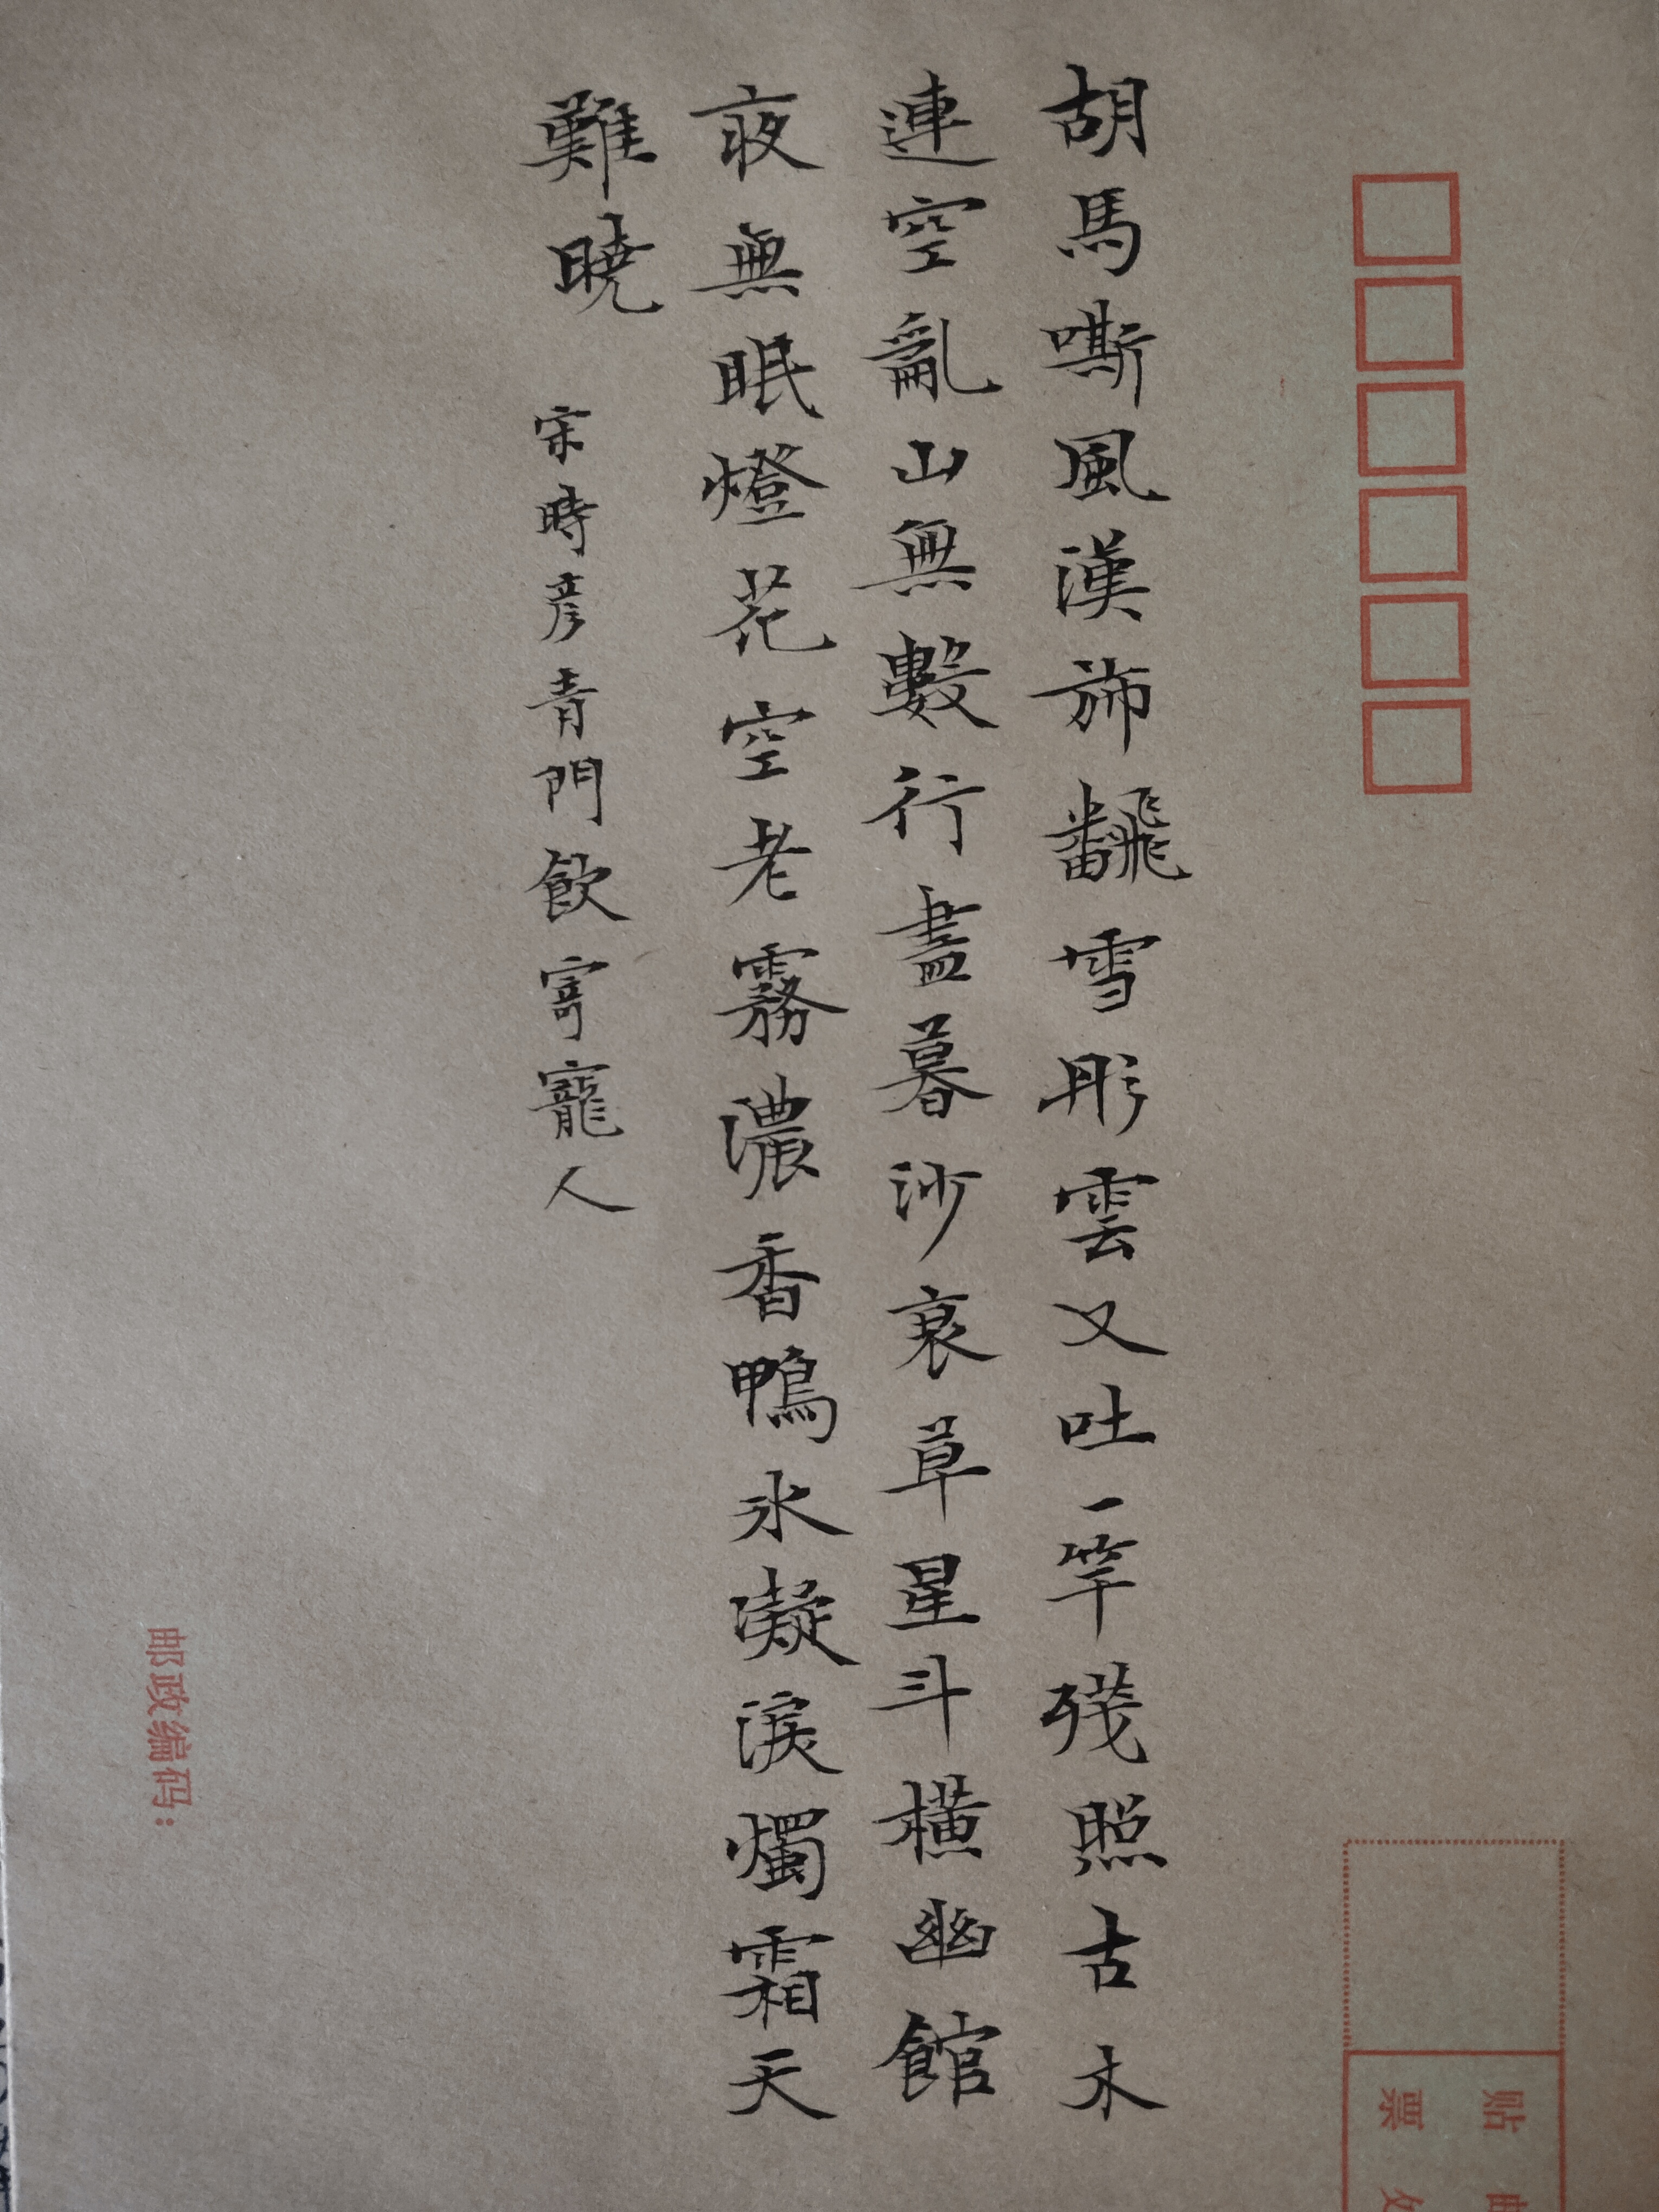 胡馬嘶風漢旆飜雪彤雲又吐一竿殘照古木
連空亂山無數行盡暮沙衰草星斗橫幽館
夜無眠燈花空老霧濃香鴨冰凝淚燭霜天
難曉
宋時彥青門飲寄寵人
邮政编码：
贴
票